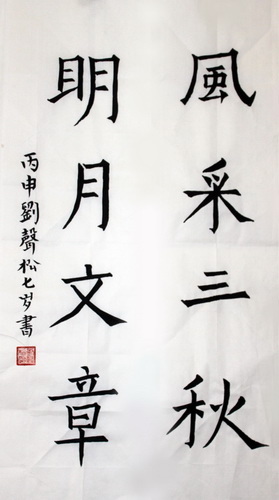 風采三秋
明月文章
丙申劉聲松七岁書